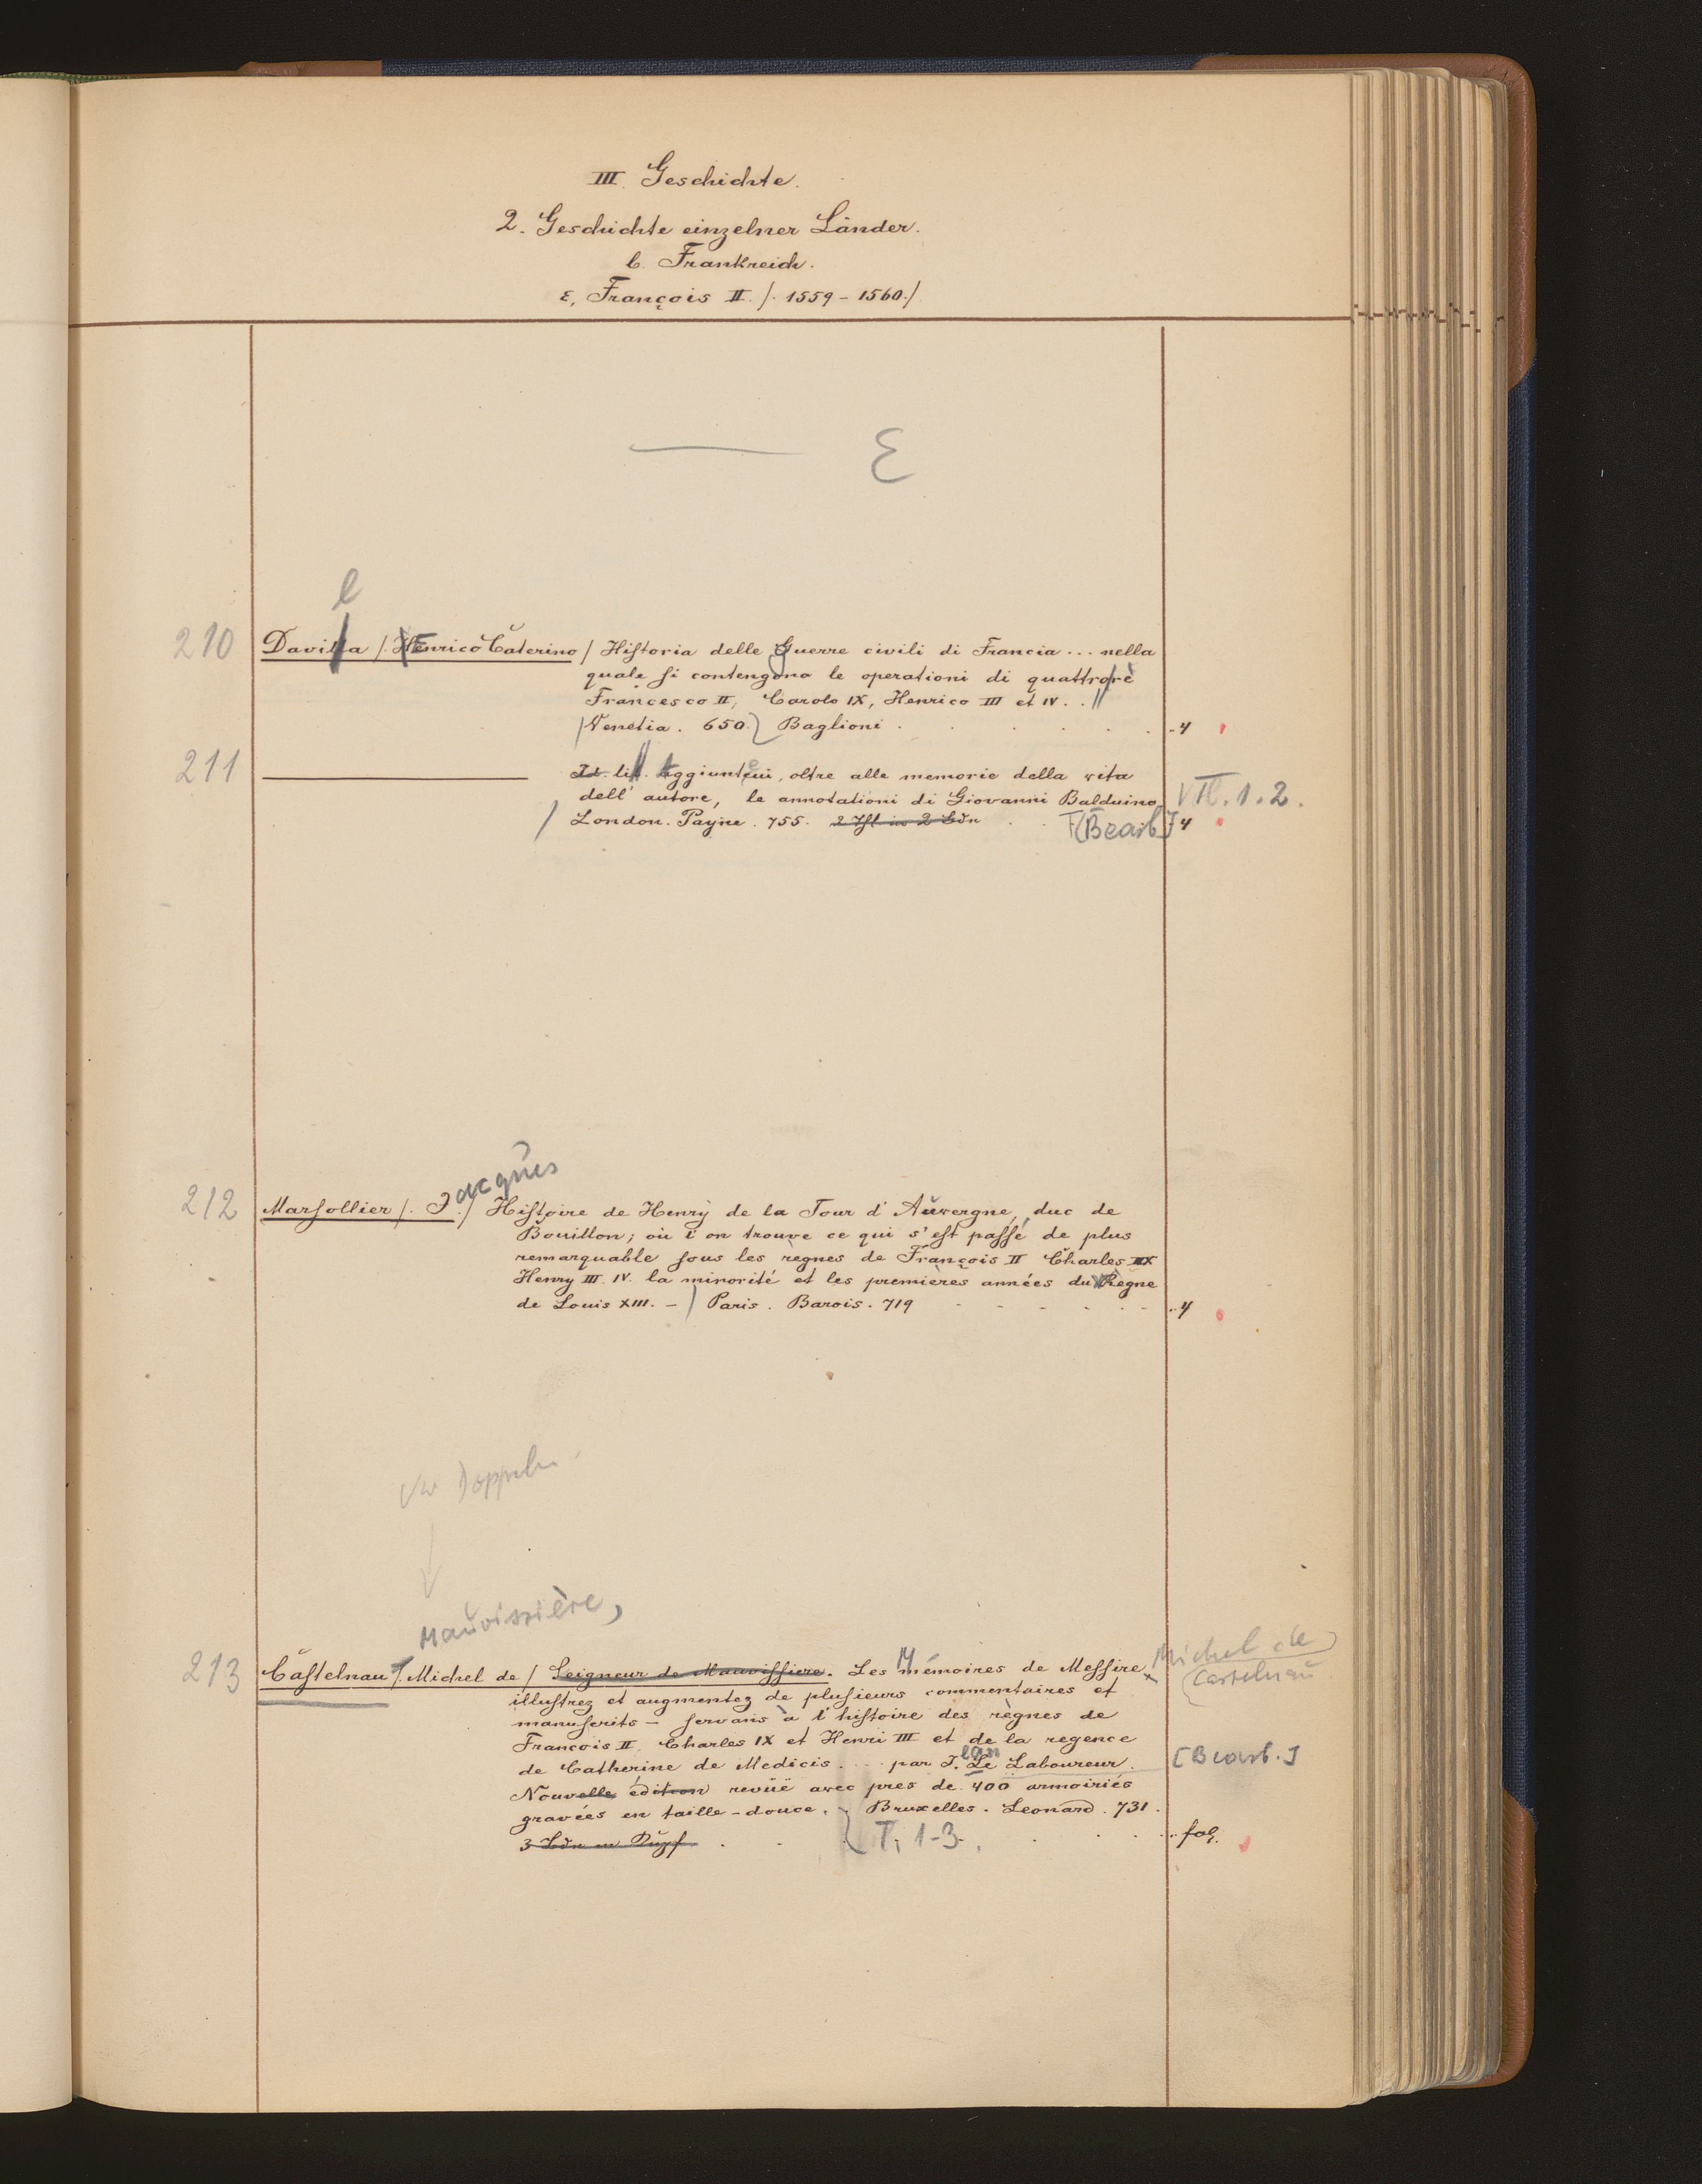 III. Geschichte.
2. Geschichte einzelner Länder.
b. Frankreich.
ε, François II. /. 1559 - 1560./
ε
l
210 Davilla /. HEnrico Caterino / Historia delle Guerre civili di Francia ... nella
quale si contengono le operationi di quattro rè
Francesco II, Carolo IX, Henrico III et IV. .
Venetia. 650. Baglioni . . . . . . 4
211 Id. lib. Aggiuntevi, oltre alle memorie della vita
dell' autore, le annotationi di Giovanni Balduino. VII. 1. 2.
London. Payne. 755. 2 Thl. in 2 Bdn . . [Bearb.] 4
Jacques
212 Marsollier /. J. / Histoire de Henry de la Tour d'Auvergne, duc de
Bouillon; où l'on trouve ce qui s'est passé de plus
remarquable sous les règnes de François II Charles IX
Henry III. IV. la minorité et les premières années du Règne
de Louis XIII. - Paris. Barois. 719 - - - - - 4
Doppeln
Mauvissière,
213 Castelnau /. Michel de / Seigneur de Mauvissiere. Les Mémoires de Messire Michel de
Castelnau
illustrez et augmentez de plusieurs commentaires et
manuscrits - servans à l'histoire des règnes de
Francois II. Charles IX et Henri III et de la regence
de Catherine de Medicis . . . par J. Le Laboureur. [Bearb.]
Nouvelle édition revüë avec pres de 400 armoiriés
gravées en taille-douce. Bruxelles. Leonard. 731.
3 Bdn m Kupf. . . T. 1-3. . . . fol.